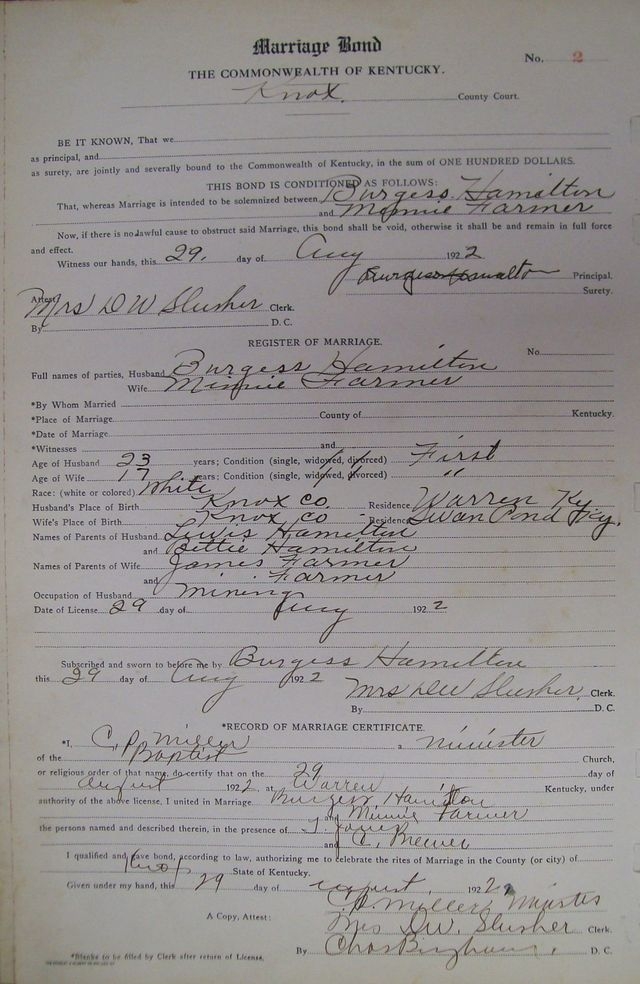 Marriage Bond
No. 2
THE COMMONWEALTH OF KENTUCKY.
Knox. County Court.
BE IT KNOWN, That we
as principal, and
as surety, are jointly and severally bound to the Commonwealth of Kentucky, in the sum of ONE HUNDRED DOLLARS.
THIS BOND IS CONDITIONED AS FOLLOWS:
That, whereas Marriage is intended to be solemnized between Burgess Hamilton
and Minnie Farmer
Now, if there is no lawful cause to obstruct said Marriage, this bond shall be void, otherwise it shall be and remain in full force
and effect.
Witness our hands, this 29. day of Aug 1922
Burgess Hamilton Principal.
Surety.
Attest
Mrs D W Slusher Clerk.
By D. C.
REGISTER OF MARRIAGE.
No.
Full names of parties, Husband Burgess Hamilton
Wife Minnie Farmer
*By Whom Married
*Place of Marriage County of Kentucky.
*Date of Marriage
*Witnesses and
Age of Husband 23 years; Condition (single, widowed, divorced) First
Age of Wife 17 years; Condition (single, widowed, divorced) "
Race: (white or colored) White
Husband's Place of Birth Knox Co. Residence Warren Ky
Wife's Place of Birth Knox Co Residence Swan Pond Ky.
Names of Parents of Husband Lewis Hamilton
and Bettie Hamilton
Names of Parents of Wife James Farmer
and Farmer
Occupation of Husband Mining
Date of License 29 day of Aug 1922
Subscribed and sworn to before me by Burgess Hamilton
this 29 day of Aug 1922
Mrs DW Slusher, Clerk.
By D. C.
*RECORD OF MARRIAGE CERTIFICATE.
*I, C. P. Miller a minister
of the Baptist Church,
or religious order of that name, do certify that on the 29 day of
August 1922, at Warren Kentucky, under
authority of the above license, I united in Marriage Burgess Hamilton
and Minnie Farmer
the persons named and described therein, in the presence of J. Jones
and C, Brewer
I qualified and gave bond, according to law, authorizing me to celebrate the rites of Marriage in the County (or city) of
Knox State of Kentucky.
Given under my hand, this 29 day of august, 1922
C. P. Miller, Minister
A Copy, Attest: Mrs DW. Slusher Clerk.
By Chas Bingham, D. C.
*Blanks to be filled by Clerk after return of License.